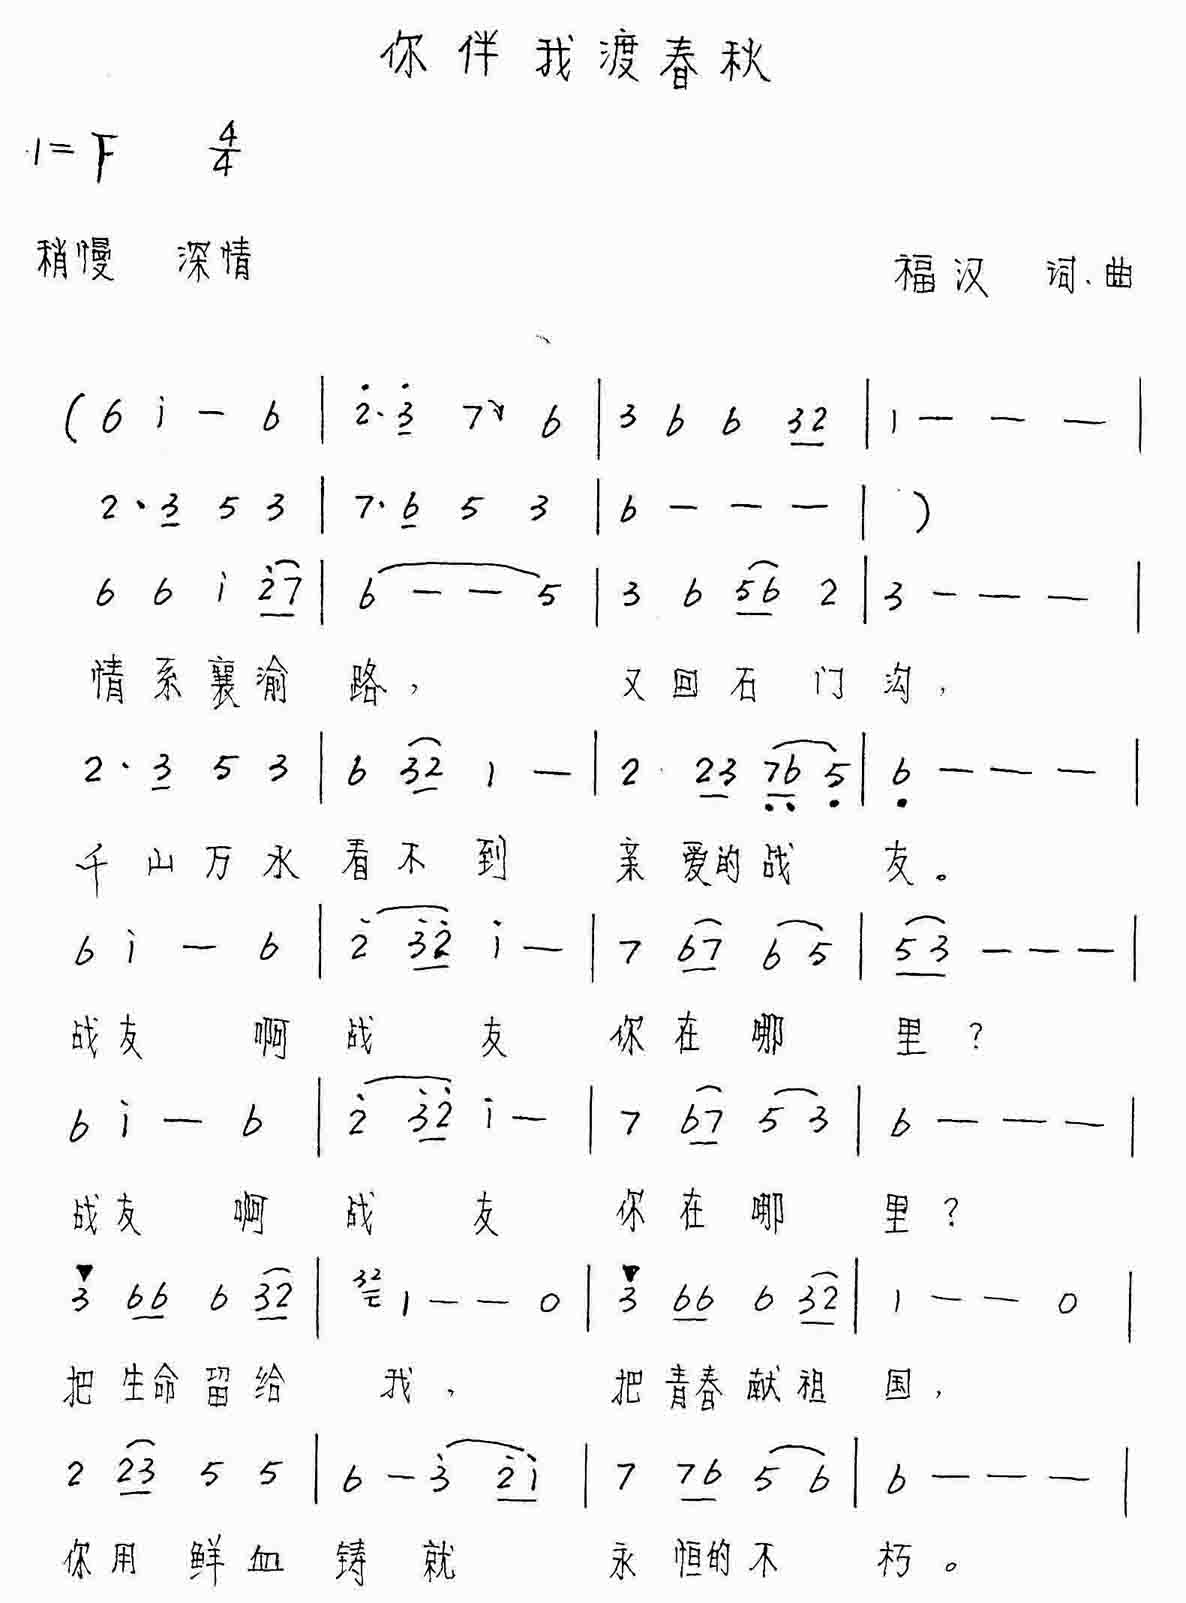 你伴我渡春秋
1=F 4/4
稍慢 深情
福汉 词、曲
( 6 i — 6 | 2̇·3̇ 7 6 | 3 6 6 32 | 1 — — — |
2·3 5 3 | 7·6 5 3 | 6 — — — | )
6 6 i 2̇7 | 6 — — 5 | 3 6 56 2 | 3 — — — |
情系襄渝路, 又回石门沟,
2·3 5 3 | 6 32 1 — | 2 23 7̣6̣ 5̣ | 6̣ — — — |
千山万水看不到 亲爱的战友。
6 i — 6 | 2̇ 3̇2̇ i — | 7 67 6 5 | 53 — — — |
战友 啊 战 友 你在哪 里?
6 i — 6 | 2̇ 3̇2̇ i — | 7 67 5 3 | 6 — — — |
战友 啊 战 友 你在哪 里?
3 66 6 32 | 32 1 — — 0 | 3 66 6 32 | 1 — — 0 |
把生命留给 我, 把青春献祖 国,
2 23 5 5 | 6 — 3̇ 2̇i | 7 76 5 6 | 6 — — — |
你用 鲜血 铸 就 永恒的不 朽。